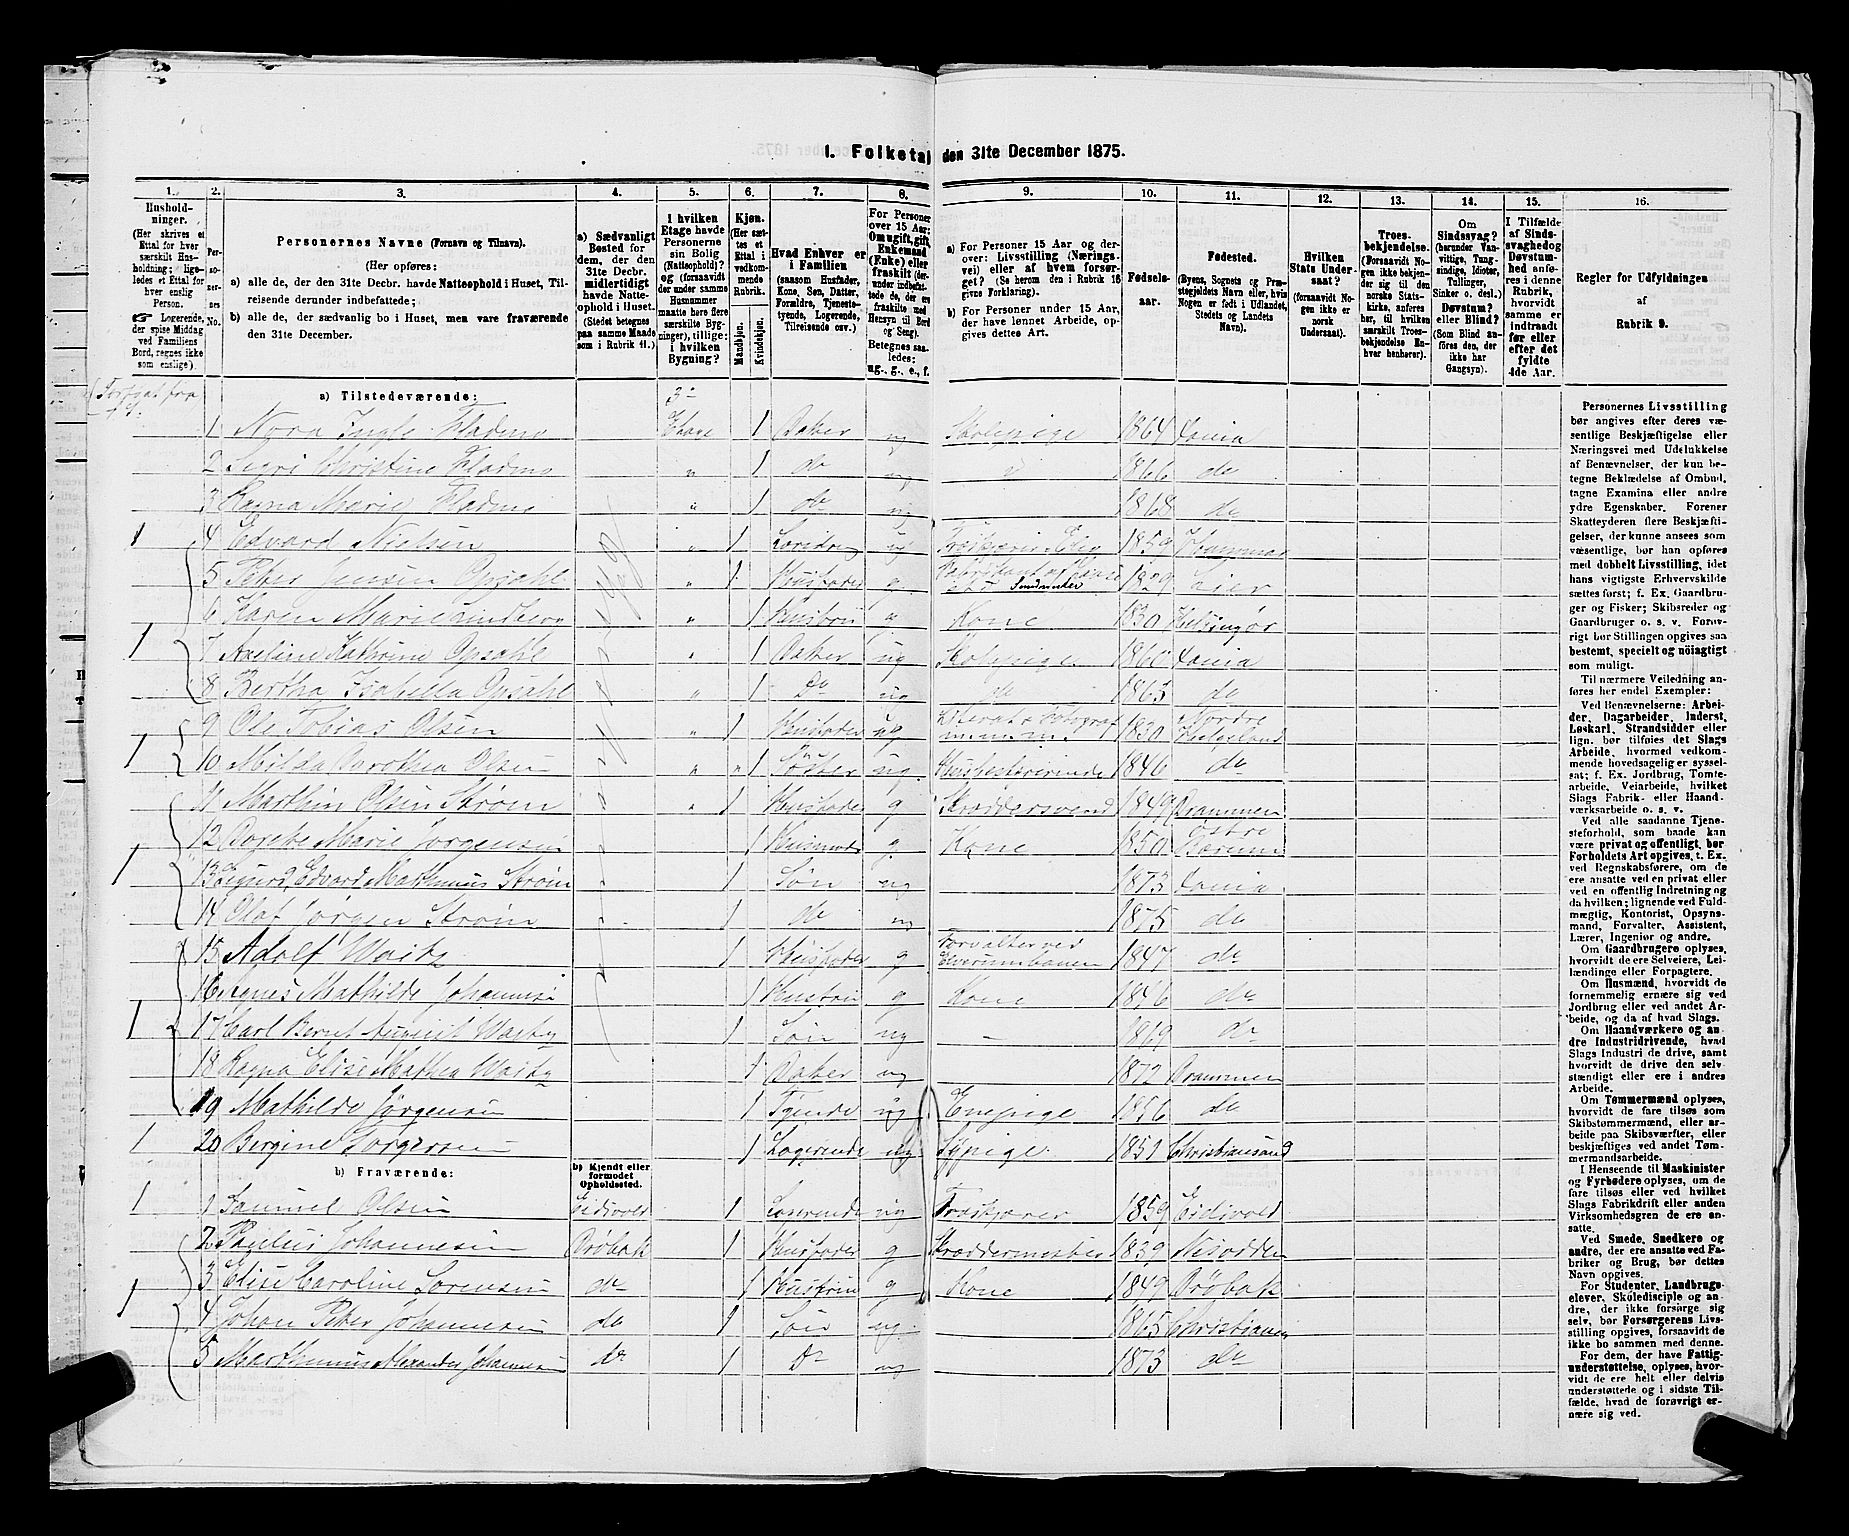 1. Folketal den 31te December 1875.
1. 2. 3. 4. 5. 6. 7. 8. 9. 10. 11. 12. 13. 14. 15. 16.
Husholdninger.
(Her skrives et
Ettal for hver
særskilt Husholdning; ligeledes
et Ettal for
hver enslig
Person.
Logerende,
der spise Middag
ved Familiens
Bord, regnes ikke
som enslige).
Personernes No.
Personernes Navne (Fornavn og Tilnavn).
(Her opføres:
a) alle de, der den 31te Decbr. havde Natteophold i Huset, Tilreisende
derunder indbefattede;
b) alle de, der sædvanlig bo i Huset, men vare fraværende
den 31te December.
a) Sædvanligt
Bosted for
dem, der den
31te Decbr.
midlertidigt
havde Natteophold
i Huset.
(Stedet betegnes
paa samme Maade
som i Rubrik 11.)
I hvilken
Etage havde
Personerne
sin Bolig
(Natteophold)?
og (forsaavidt
der under samme
Husnummer
maatte høre flere
særskilte Bygninger),
tillige:
i hvilken
Bygning?
Kjøn.
(Her sættes
et
Ettal i
vedkommende
Rubrik.
Mandkjøn.
Kvindekjøn.
Hvad Enhver er
i Familien
(saasom Husfader,
Kone, Søn, Datter,
Forældre, Tjenestetyende,
Logerende,
Tilreisende osv.)
For Personer
over 15 Aar:
Om ugift, gift,
Enkemand
(Enke) eller
fraskilt
Betegnes saaledes:
ug., g., e., f.
a) For Personer 15 Aar og derover:
Livsstilling (Næringsvei)
eller af hvem forsørget?
(Se herom den i Rubrik 16
givne Forklaring).
b) For Personer under 15 Aar,
der have lønnet Arbeide, opgives
dettes Art.
Fødselsaar.
Fødested.
(Byens, Sognets og Præstegjeldets
Navn eller, hvis
Nogen er født i Udlandet,
Stedets og Landets
Navn).
Hvilken
Stats Undersaat?
(forsaavidt Nogen
ikke er
norsk
Undersaat).
Troesbekjendelse.
(Forsaavidt Nogen
ikke bekjender
sig til den
norske Statskirke,
anføres
her, til hvilken
særskilt Troesbekjendelse
Enhver
henhører).
Om
Sindssvag?
(herunder Vanvittige,
Tungsindige,
Idioter,
Tullinger,
Sinker o. desl.)
Døvstum?
eller Blind?
(Som Blind anføres
den, der
ikke har
Gangsyn).
I Tilfælde
af Sindssvaghed
og
Døvstumhed
anføres
i denne
Rubrik,
hvorvidt
samme er
indtraadt
før eller
efter det
fyldte
4de Aar.
Regler for Udfyldningen
af
Rubrik 9.
a) Tilstedeværende:
3
1 Nora Fladmo Etage 1 Datter ug Skolepige 1864 Xania
2 Christine Fladmo 1 do ug 1866 do
3 Ragna Marie Fladmo 1 do ug 1868 do
1 4 Edvard Nielsen 1 ug 1859 Hammar
5 Peter Jensen Opsahl 1 Husfader g Snedmester 1829 Lier
6 Karen Marie Lindberg 1 Hustru g Kone 1830 Helsingør
1 7 Axeline Kathrine Opsahl 1 Datter ug Skolepige 1860 Xania
8 Bertha Isabella Opsahl 1 Do ug do 1865 do
9 Ole Tobias Olsen 1 Husfader ug Literat & Fotograf 1830 Nordre Helgeland
1 10 Milda Dorothea Olsen 1 Søster ug Husbestyrerinde 1846 do
11 Marthin Olsen Strøm 1 Husfader g Skræddersvend 1849 Drammen
12 Dorthe Marie Jørgensen 1 Husmoder g Kone 1850 Østre Bærum
1 13 Sigurd Edvard Mathinius Strøm 1 Søn ug 1873 Xania
14 Olaf Jørgen Strøm 1 do ug 1875 do
15 Adolf 1 Husfader g Forvalter ved Elverumbanen 1847 do
16 Agnes Mathilde Johannesen 1 Hustru g Kone 1846 do
1 17 Carl Bernt August 1 Søn ug 1869 do
18 Ragna Elise Mathea 1 Datter ug 1872 Drammen
19 Mathilde Jørgensen 1 Tyende ug Enepige 1856 do
1 20 Bergine Torgersen 1 Logerende ug Sypige 1851 Christiansand
b) Fraværende:
b) Kjendt eller
formodet
Opholdssted.
1 1 Samuel Olsen Eidsvold 1 Logerende ug 1859 Eidsvold
2 Paulus Johannesen Drøbak 1 Husfader g Skræddermester 1839 Nesodden
3 Elise Caroline Sørensen do 1 Hustru g Kone 1849 Drøbak
1 4 Johan Peter Johannesen do 1 Søn ug 1865 Christiania
5 Marthinius Alexander Johannesen do 1 Do ug 1873 do
Personernes Livsstilling
bør angives efter deres væsentlige
Beskjæftigelse eller
Næringsvei med Udelukkelse
af Benævnelser, der kun betegne
Beklædelse af Ombud,
tagne Examina eller andre
ydre Egenskaber. Forener
Skatteyderen flere Beskjæftigelser,
der kunne ansees som
væsentlige, bør han opføres
med dobbelt Livsstilling, idet
hans vigtigste Erhvervskilde
sættes først; f. Ex. Gaardbruger
og Fisker; Skibsreder og
Gaardbruger o. s. v. Forøvrigt
bør Stillingen opgives saa
bestemt, specielt og nøiagtigt
som muligt.
Til nærmere Veiledning anføres
her endel Exempler:
Ved Benævnelserne: Arbeider,
Dagarbeider, Inderst,
Løskarl, Strandsidder eller
lign. bør tilføies det Slags
Arbeide, hvormed vedkommende
hovedsagelig er sysselsat;
f. Ex. Jordbrug, Tomtearbeide,
Veiarbeide, hvilket
Slags Fabrik- eller Haandværksarbeide
o. s. v.
Ved alle saadanne Tjenesteforhold,
som baade kan
være privat og offentligt, bør
Forholdets Art opgives, t. Ex.
ved Regnskabsførere, om de
ere ansatte ved en privat eller
ved en offentlig Indretning og
da hvilken; lignende ved Fuldmægtig,
Kontorist, Opsynsmand,
Forvalter, Assistent,
Lærer, Ingeniør og andre.
Om Gaardbrugere oplyses,
hvorvidt de ere Selveiere, Leilændinge
eller Forpagtere.
Om Husmænd, hvorvidt de
fornemmelig ernære sig ved
Jordbrug eller ved andet Arbeide,
og da af hvad Slags.
Om Haandværkere og andre
Industridrivende, hvad
Slags Industri de drive, samt
hvorvidt de drive den selvstændigt
eller ere i andres
Arbeide.
Om Tømmermænd oplyses,
hvorvidt de fare tilsøs som
Skibstømmermænd, eller arbeide
paa Skibsværfter, eller
beskjæftiges ved andet Tømmermandsarbeide.
I Henseende til Maskinister
og Fyrbødere oplyses, om de
fare tilsøs eller ved hvilket
Slags Fabrikdrift eller anden
Virksomhedsgren de ere ansatte.
Ved Smede, Snedkere og
andre, der ere ansatte ved Fabriker
og Brug, bør dettes
Navn opgives.
For Studenter, Landbrugselever,
Skoledisciple og andre,
der ikke forsørge sig
selv, bør Forsørgerens Livsstilling
opgives, forsaavidt de
ikke bo sammen med denne.
For dem, der have Fattigunderstøttelse,
oplyses, hvorvidt
de ere helt eller delvis
understøttede og i sidste Tilfælde,
hvad de forøvrigt ernære
sig ved.